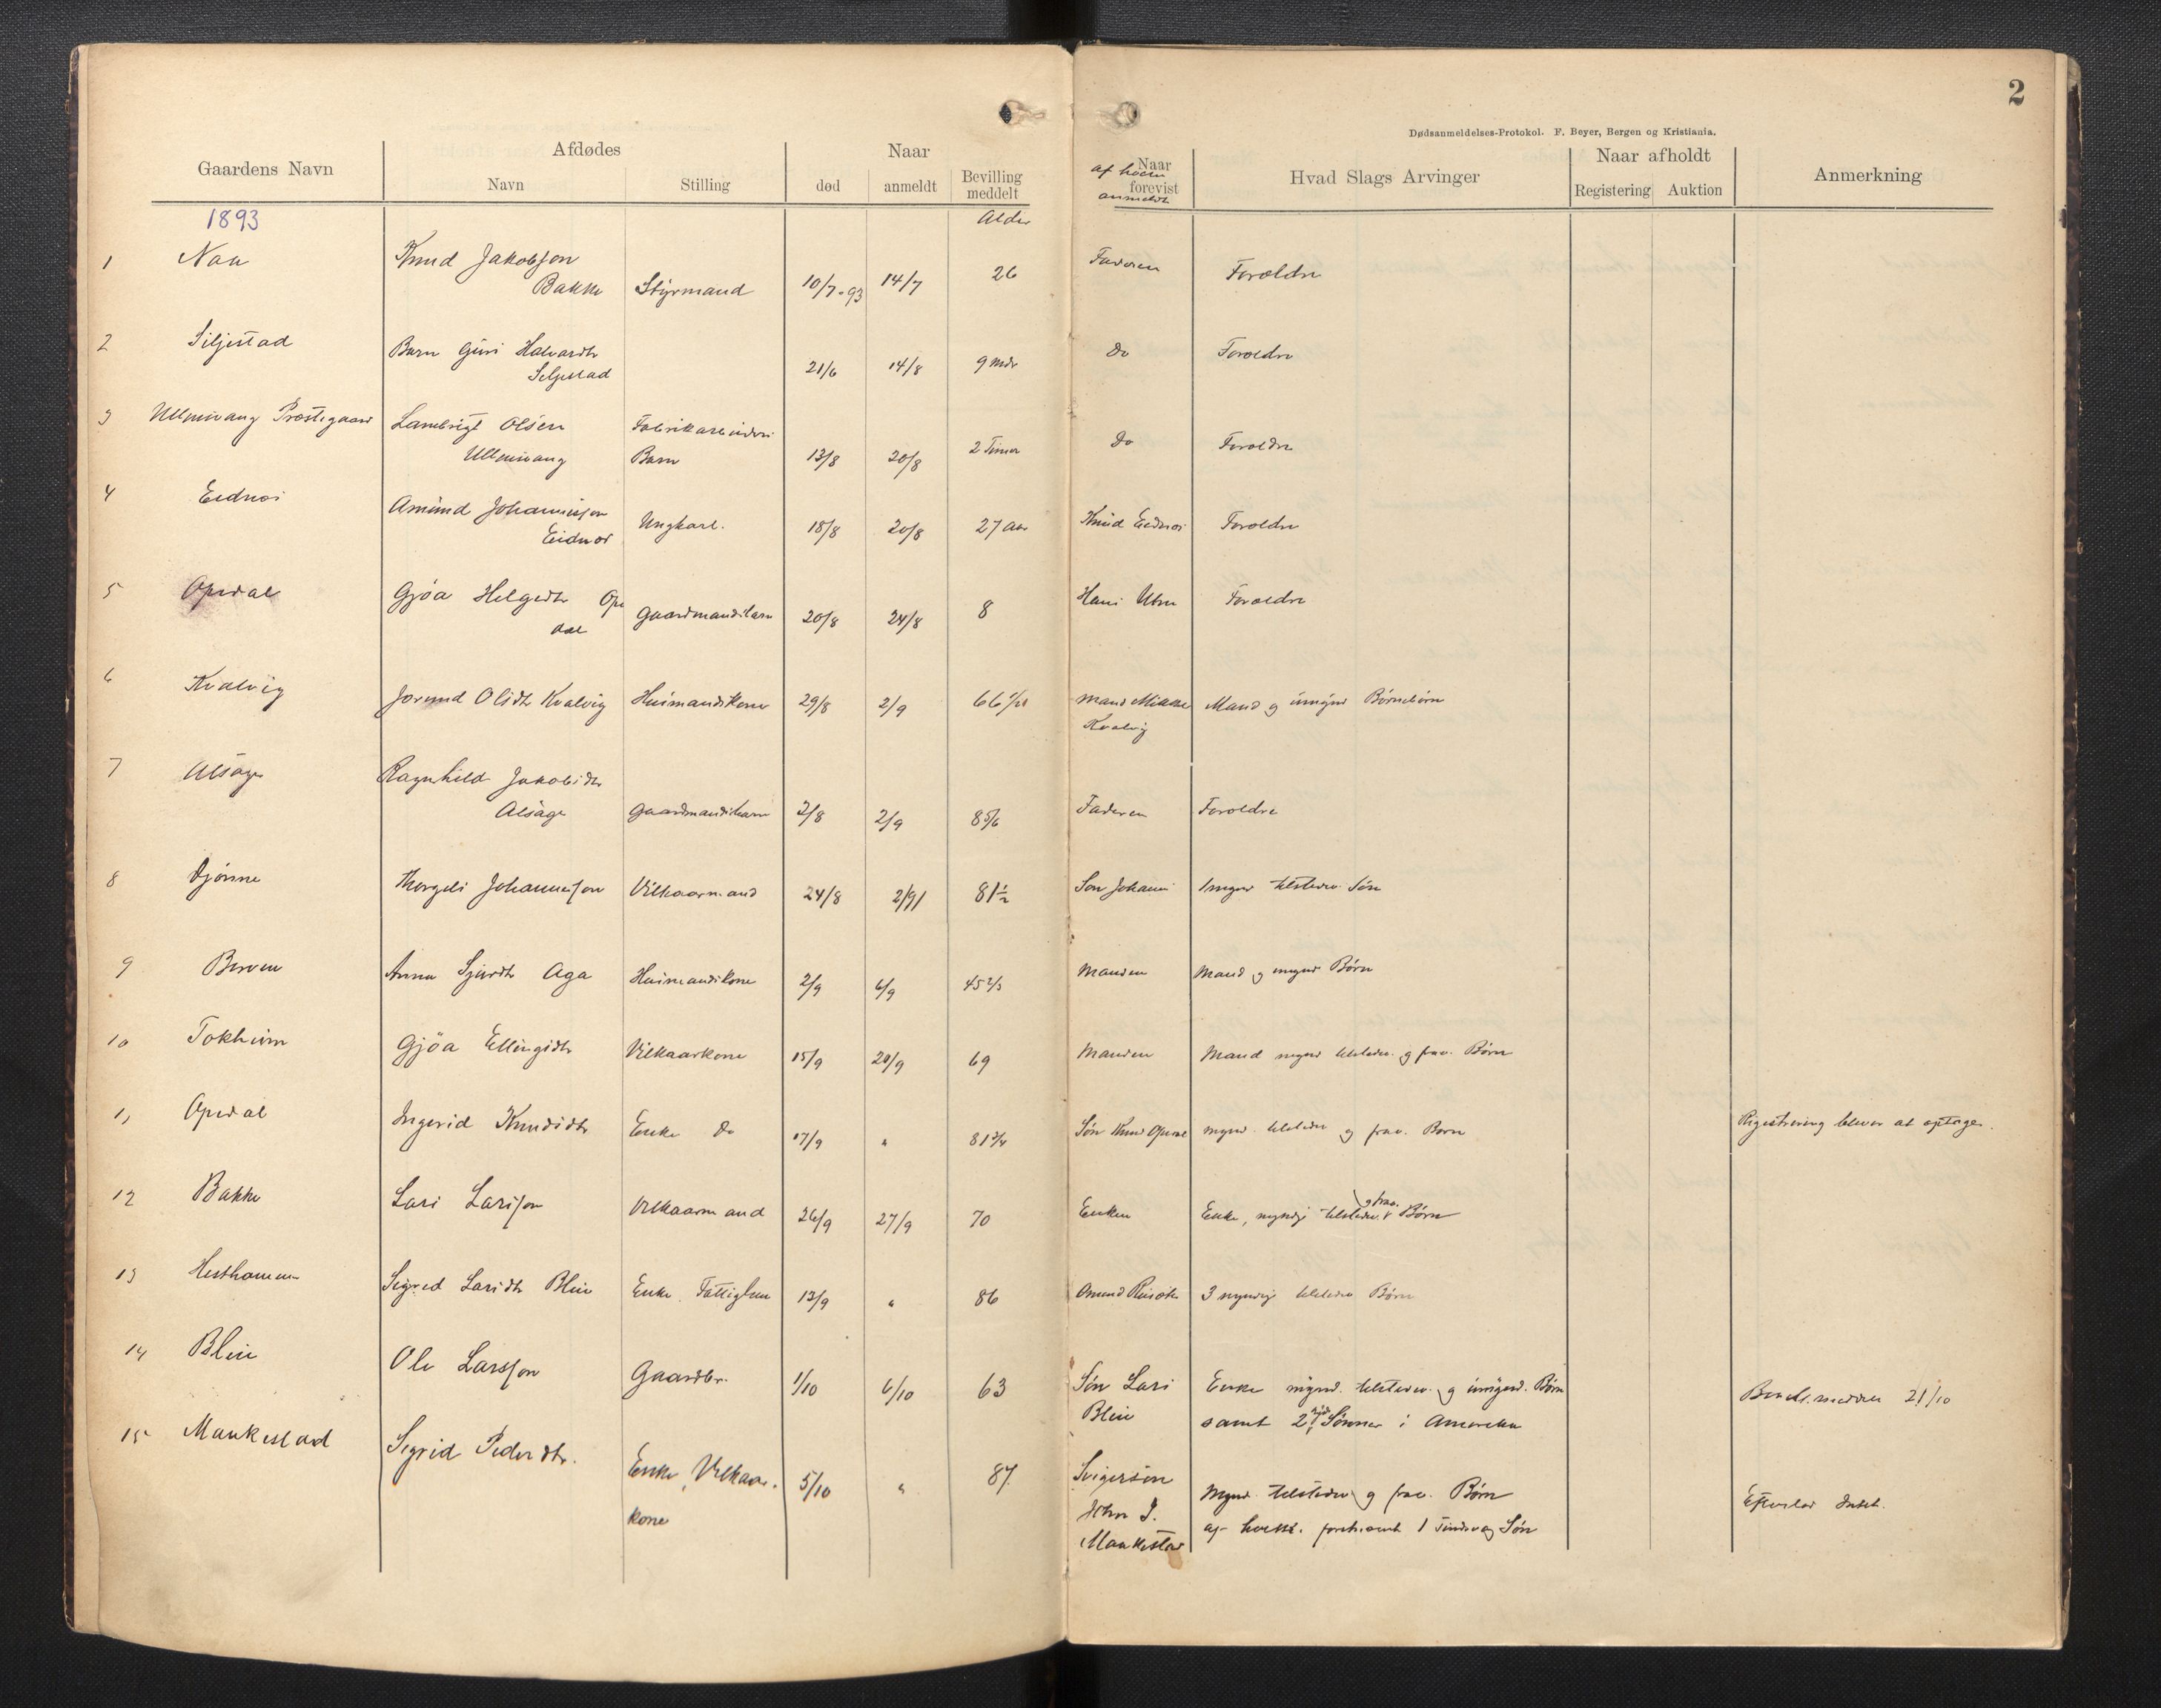 2
Dødsanmeldelses-Protokol. F. Beyer, Bergen og Kristiania.
Gaardens Navn
Afdødes
Navn
Stilling
Naar
død
anmeldt
Bevilling meddelt
Naar forevist
af hvem anmeldt
Hvad Slags Arvinger
Naar afholdt
Registering
Auktion
Anmerkning
1893
Alder
1 Naa Knud Jakobson
Bakke Styrmand 10/7-93 14/7 26 Faderen Forældre
2 Siljestad Barn Guri Halvardtr
Seljestad 21/6 14/8 9 mdr Do Forældre
3 Ullensvang Præstegaard Lambrigt Olsen Fabrikarbeider
Ullensvang Barn 13/8 20/8 2 Timer Do Forældre
4 Eidnes Amund Johannesson
Eidnes Ungkarl. 18/8 20/8 27 Aar Knud Eidnes Forældre
5 Opedal Gjøa Helgedtr Ope
dal Gaardmandsbarn 20/8 24/8 8 Hans Utne Forældre
6 Kvalvig Jorund Olsdtr Kvalvig Husmandskone 29/8 2/9 66 Mand
Kvalvig Mand og umynd Børnebørn
7 Alsåge Ragnhild Jakobsdtr
Alsåge Gaardmandsbarn 2/8 2/9 8 5/6 Faderen Forældre
8 Djønne Thorgils Johannesson Vilkaarmand 24/8 2/9 81½ Søn Johanns 1 mynd tilstedev. Søn
9 Berven Anna Sjurdtr Aga Husmandskone 2/9 6/9 45 2/3 Manden Mand og mynd Børn
10 Tokheim Gjøa Ellingsdtr Vilkaarkone 15/9 20/9 69 Manden Mand mynd tilstedev. og frav. Børn
11 Opedal Ingerid Knudsdtr Enke Do 17/9 " 81 3/4 Søn Knud Opedal mynd. tilstedev og frav. Børn Registrering blever at optage.
12 Bakke Lars Larsson Vilkaarmand 26/9 27/9 70 Enken Enke, myndige tilstedev. og frav. Børn
13 Hesthammer Sigrid Larsdtr Bleie Enke Fattiglem 13/9 " 86 Amund 3 myndig tilstedev Børn
14 Bleie Ole Larsson Gaardbr. 1/10 6/10 63 Søn Lars
Bleie Enke mynd. tilstedev. og umynd. Børn
samt 2 mynd Sønner i Amerika 21/10
15 Mankestad Sigrid Pedersdtr. Enke, Vilkaar-
kone 5/10 " 87 Svigersøn
John J.
Mankestad Mynd. tilstedev og frav. Børn
af 1 Søn Efterlod Intet.